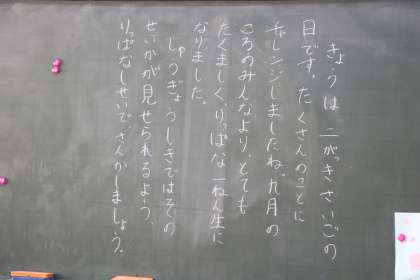 きょうは二がっきさいごの
日です。たくさんのことに
チャレンジしましたね。九月の
ころのみんなより、とても
たくましく、りっぱな一ねん生に
なりました。
しゅうぎょうしきではその
せいかが見せられるよう、
りっぱなしせいでさんかしましょう。